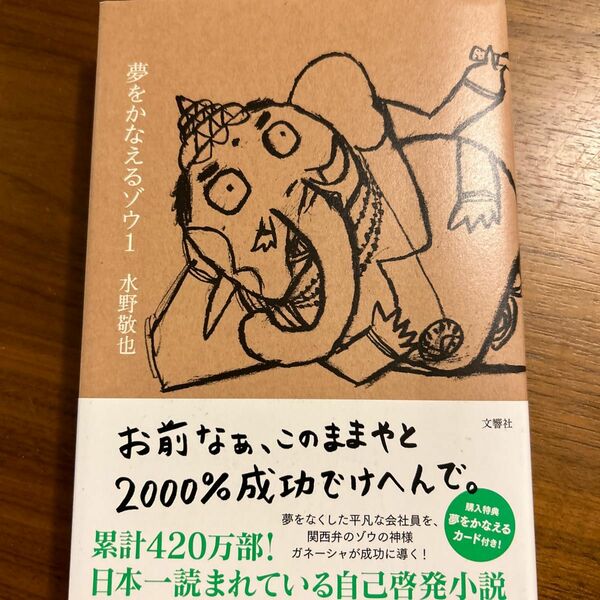 夢をかなえるゾウ1
水野敬也
文響社
お前なぁ、このままやと
2000％成功でけへんで。
夢をなくした平凡な会社員を、
関西弁のゾウの神様
ガネーシャが成功に導く！
購入特典
夢をかなえる
カード付き！
累計420万部！
日本一読まれている自己啓発小説